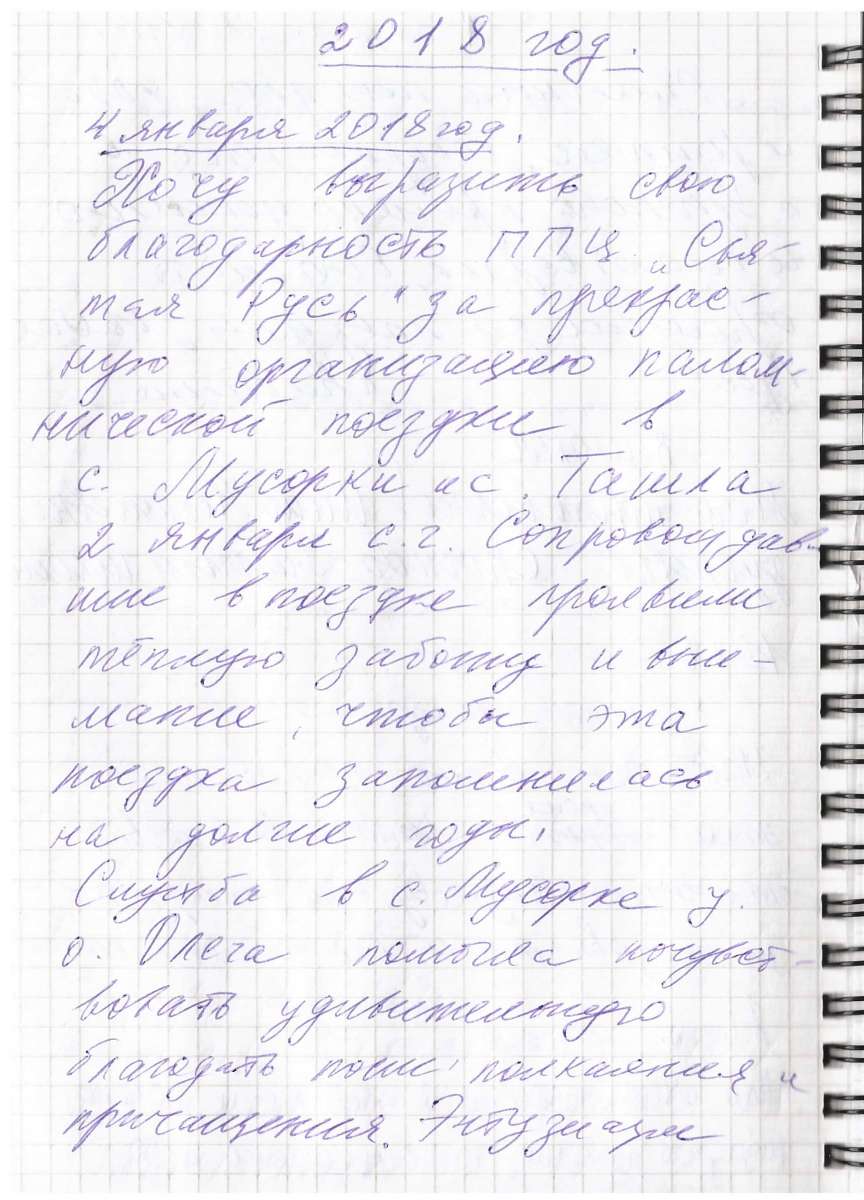 2018 год.
4 января 2018 год.
Хочу выразить свою
благодарность ППЦ „Свя-
тая Русь" за прекрас-
ную организацию палом-
нической поездки в
с. Мусорки и с. Ташла
2 января с.г. Сопровождав-
шие в поездке проявили
тёплую заботу и вни-
мание, чтобы эта
поездка запомнилась
на долгие годы.
Служба в с. Мусорке у
о. Олега помогла почувст-
вовать удивительную
благодать после покаяния и
причащения. Энтузиазм